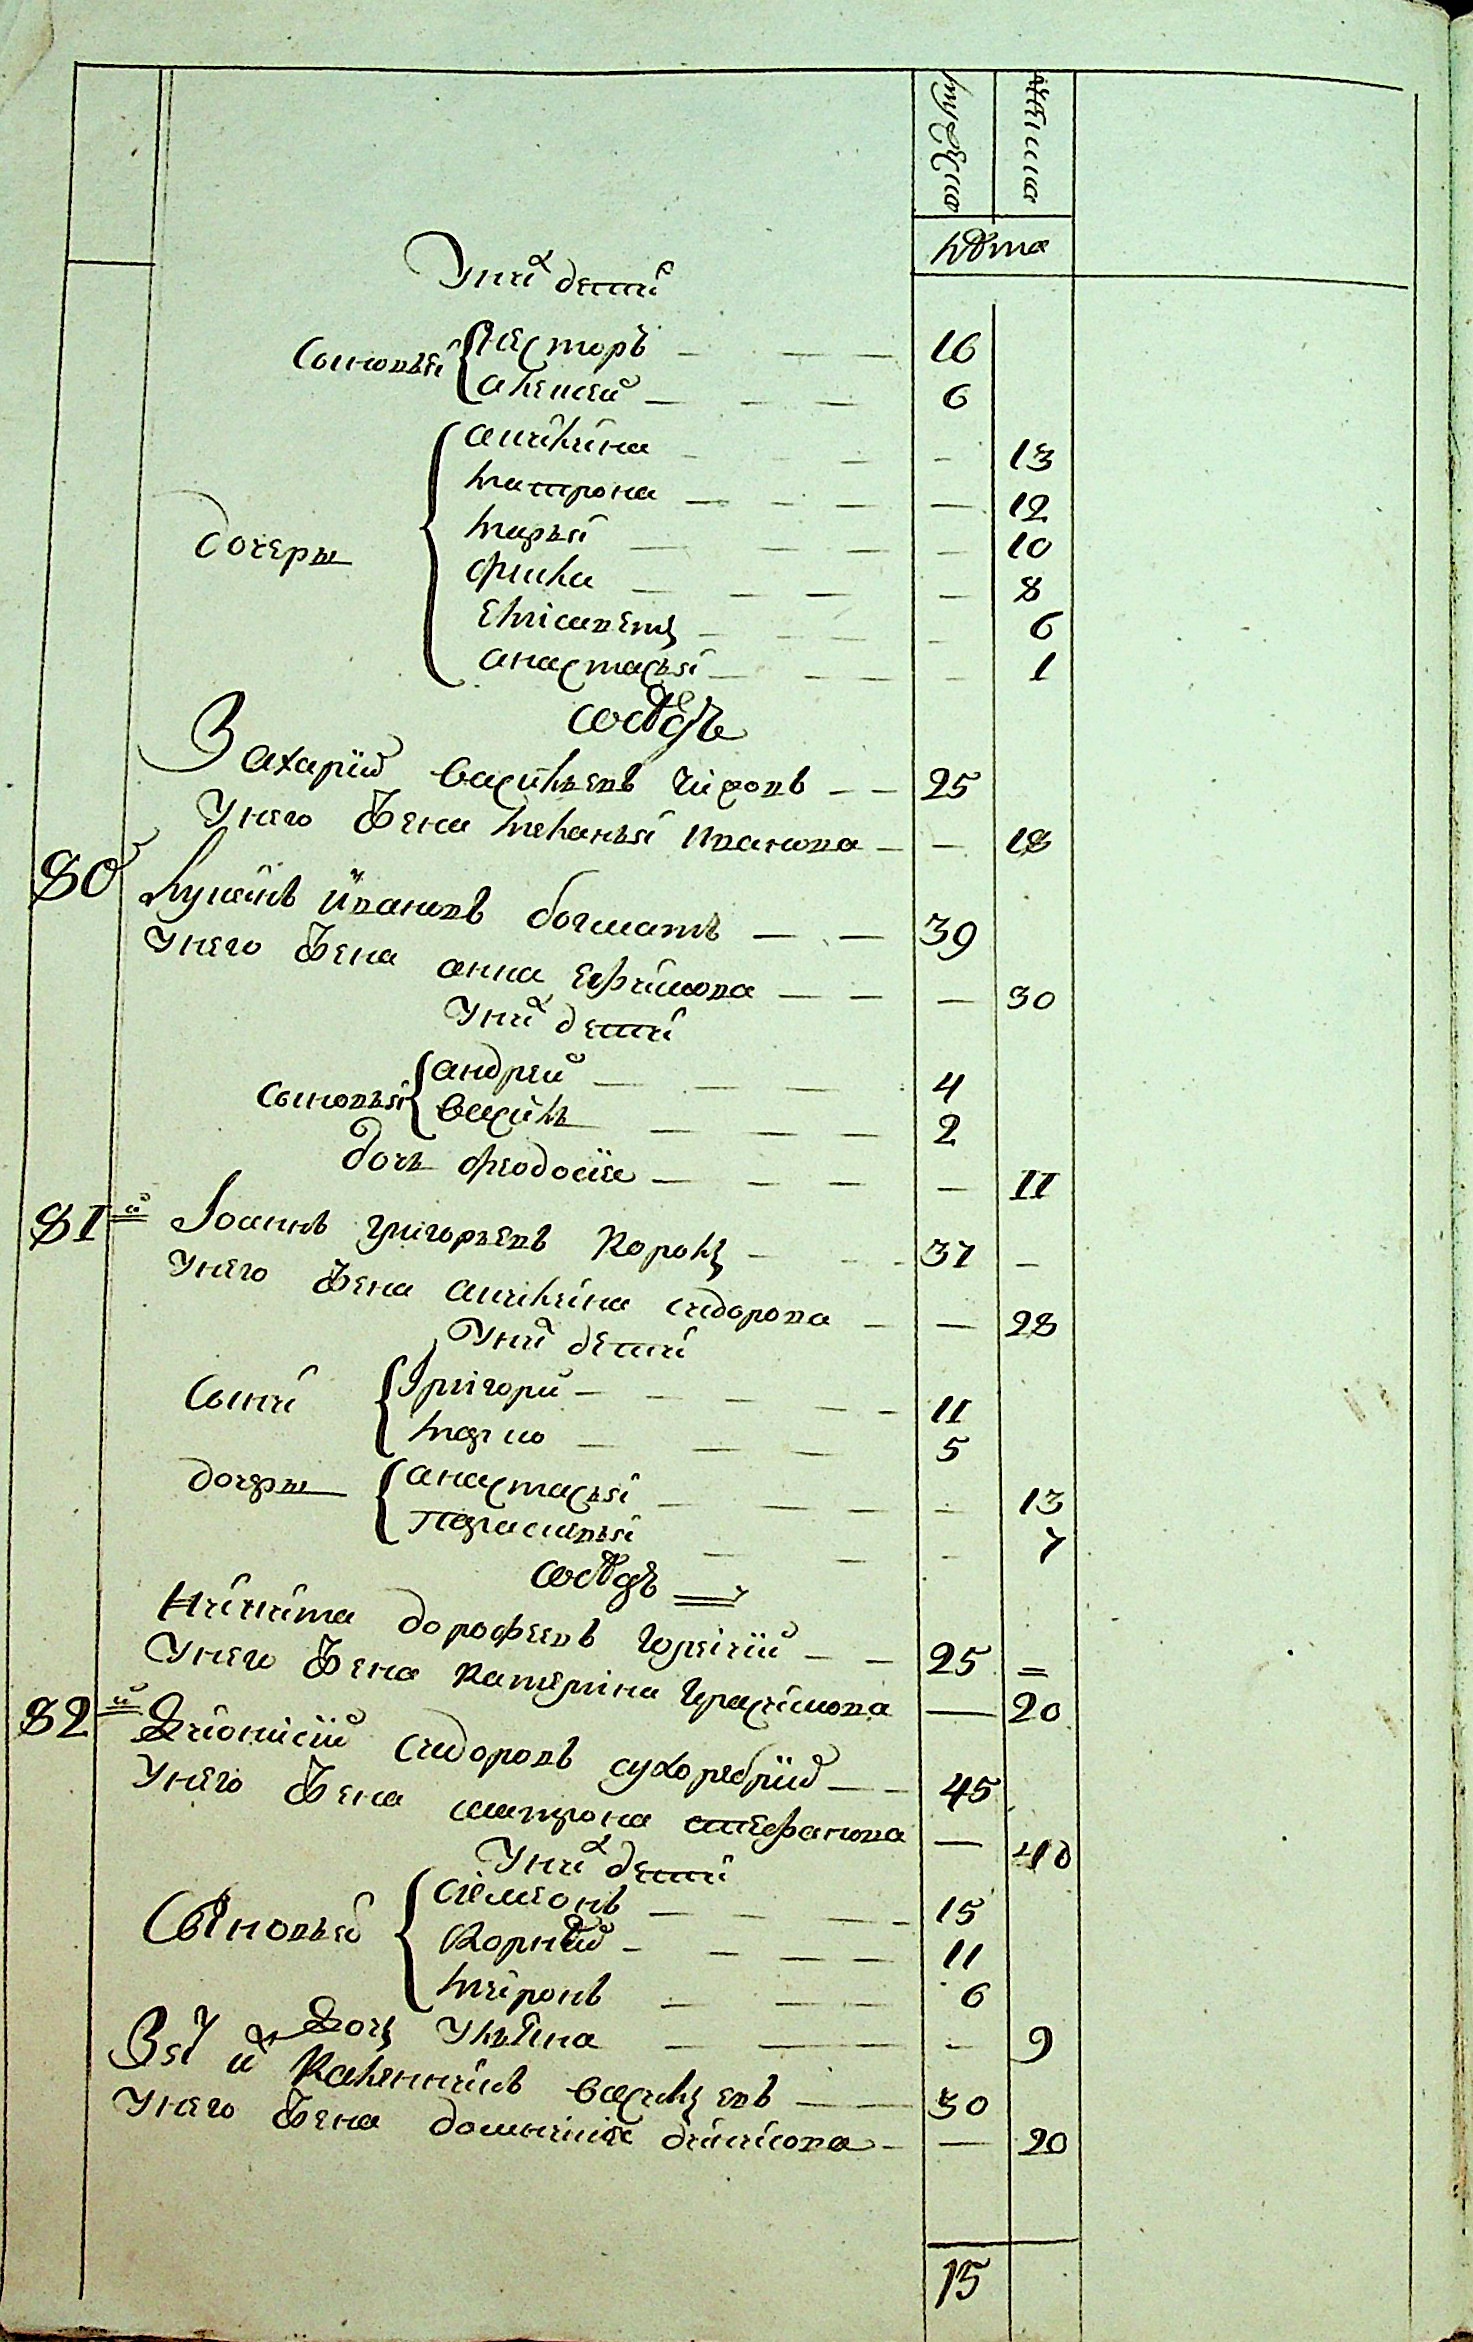 мужеска женска
лѣта
У них дети
Сыновья Нестор 16
Алексей 6
дочеры Акилина 13
Матрона 12
Марья 10
Фекла 8
Елисавета 6
Анастасья 1
сосѣдъ
Захарий Васильевъ 25
У него жена Меланья Иванова 18
80й Лукиянъ Ивановъ Богмат 39
У него жена Анна Ефимова 30
У них дети
Сыновья Андрей 4
Василь 2
дочь Феодосия 11
81й Иоаннъ Григорьевъ Король 37
У него жена Акилина Сидорова 28
У них дети
Сыны Григори 11
Марко 5
дочеры Анастасья 13
Парасковья 7
сосѣдъ
Никита Дорофеевъ 25
У него жена Катерина Герасимова 20
82й Дионисий Сидоровъ Сухоребрий 45
У него жена Матрона Стефанова 40
У них дети
Сыновья Симеонъ 15
Корнѣй 11
Миронъ 6
Дочь Ульяна 9
Зять их Каленникъ Васильевъ 30
У него жена Домникия 20
15